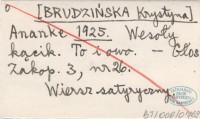 [BRUDZIŃSKA Krystyna]
Ananke 1925. Wesoły
kącik. To i owo. – Głos
Zakop. 3, nr 26.
Wiersz satyryczny.